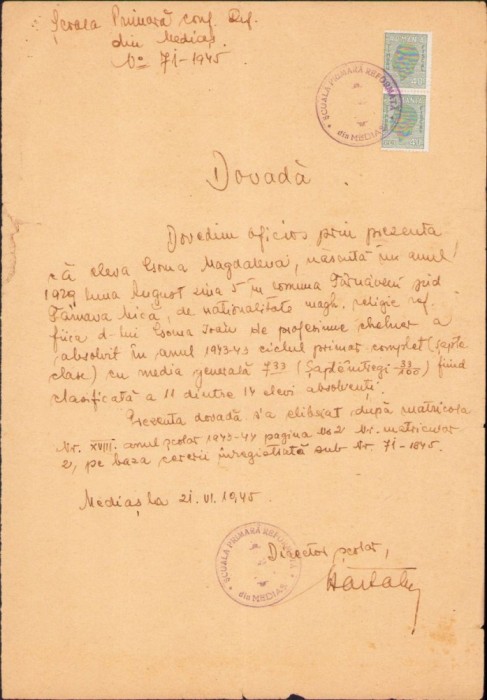 Școala Primară conf. Ref.
din Mediaș.
No 71-1945
ROMANIA
SCUALA PRIMARĂ REFORMATĂ
din MEDIAȘ
Dovadă.
Dovedim oficios prin prezenta
că eleva Csoma Magdalena, născută în anul
1929 luna August ziua 5 în comuna Târnăveni jud
Târnava Mică, de naționalitate magh. religie ref.
fiica d-lui Csoma Ioan de profesiune chelnar a
absolvit în anul 1943-43 ciclul primar complet (șapte
clase) cu media generală 7 33 (Șapte întregi 33/100) fiind
clasificată a 11 dintre 14 elevi absolvenți.
Prezenta dovadă s'a eliberat după matricola
Nr. XVIII. anul școlar 1943-44 pagina No 2 Nr. matricular
2, pe baza cererii înregistrată sub Nr. 71-1845.
Mediaș la 21. VI. 1945.
SCUALA PRIMARĂ REFORMATĂ
din MEDIAȘ
Director școlar,